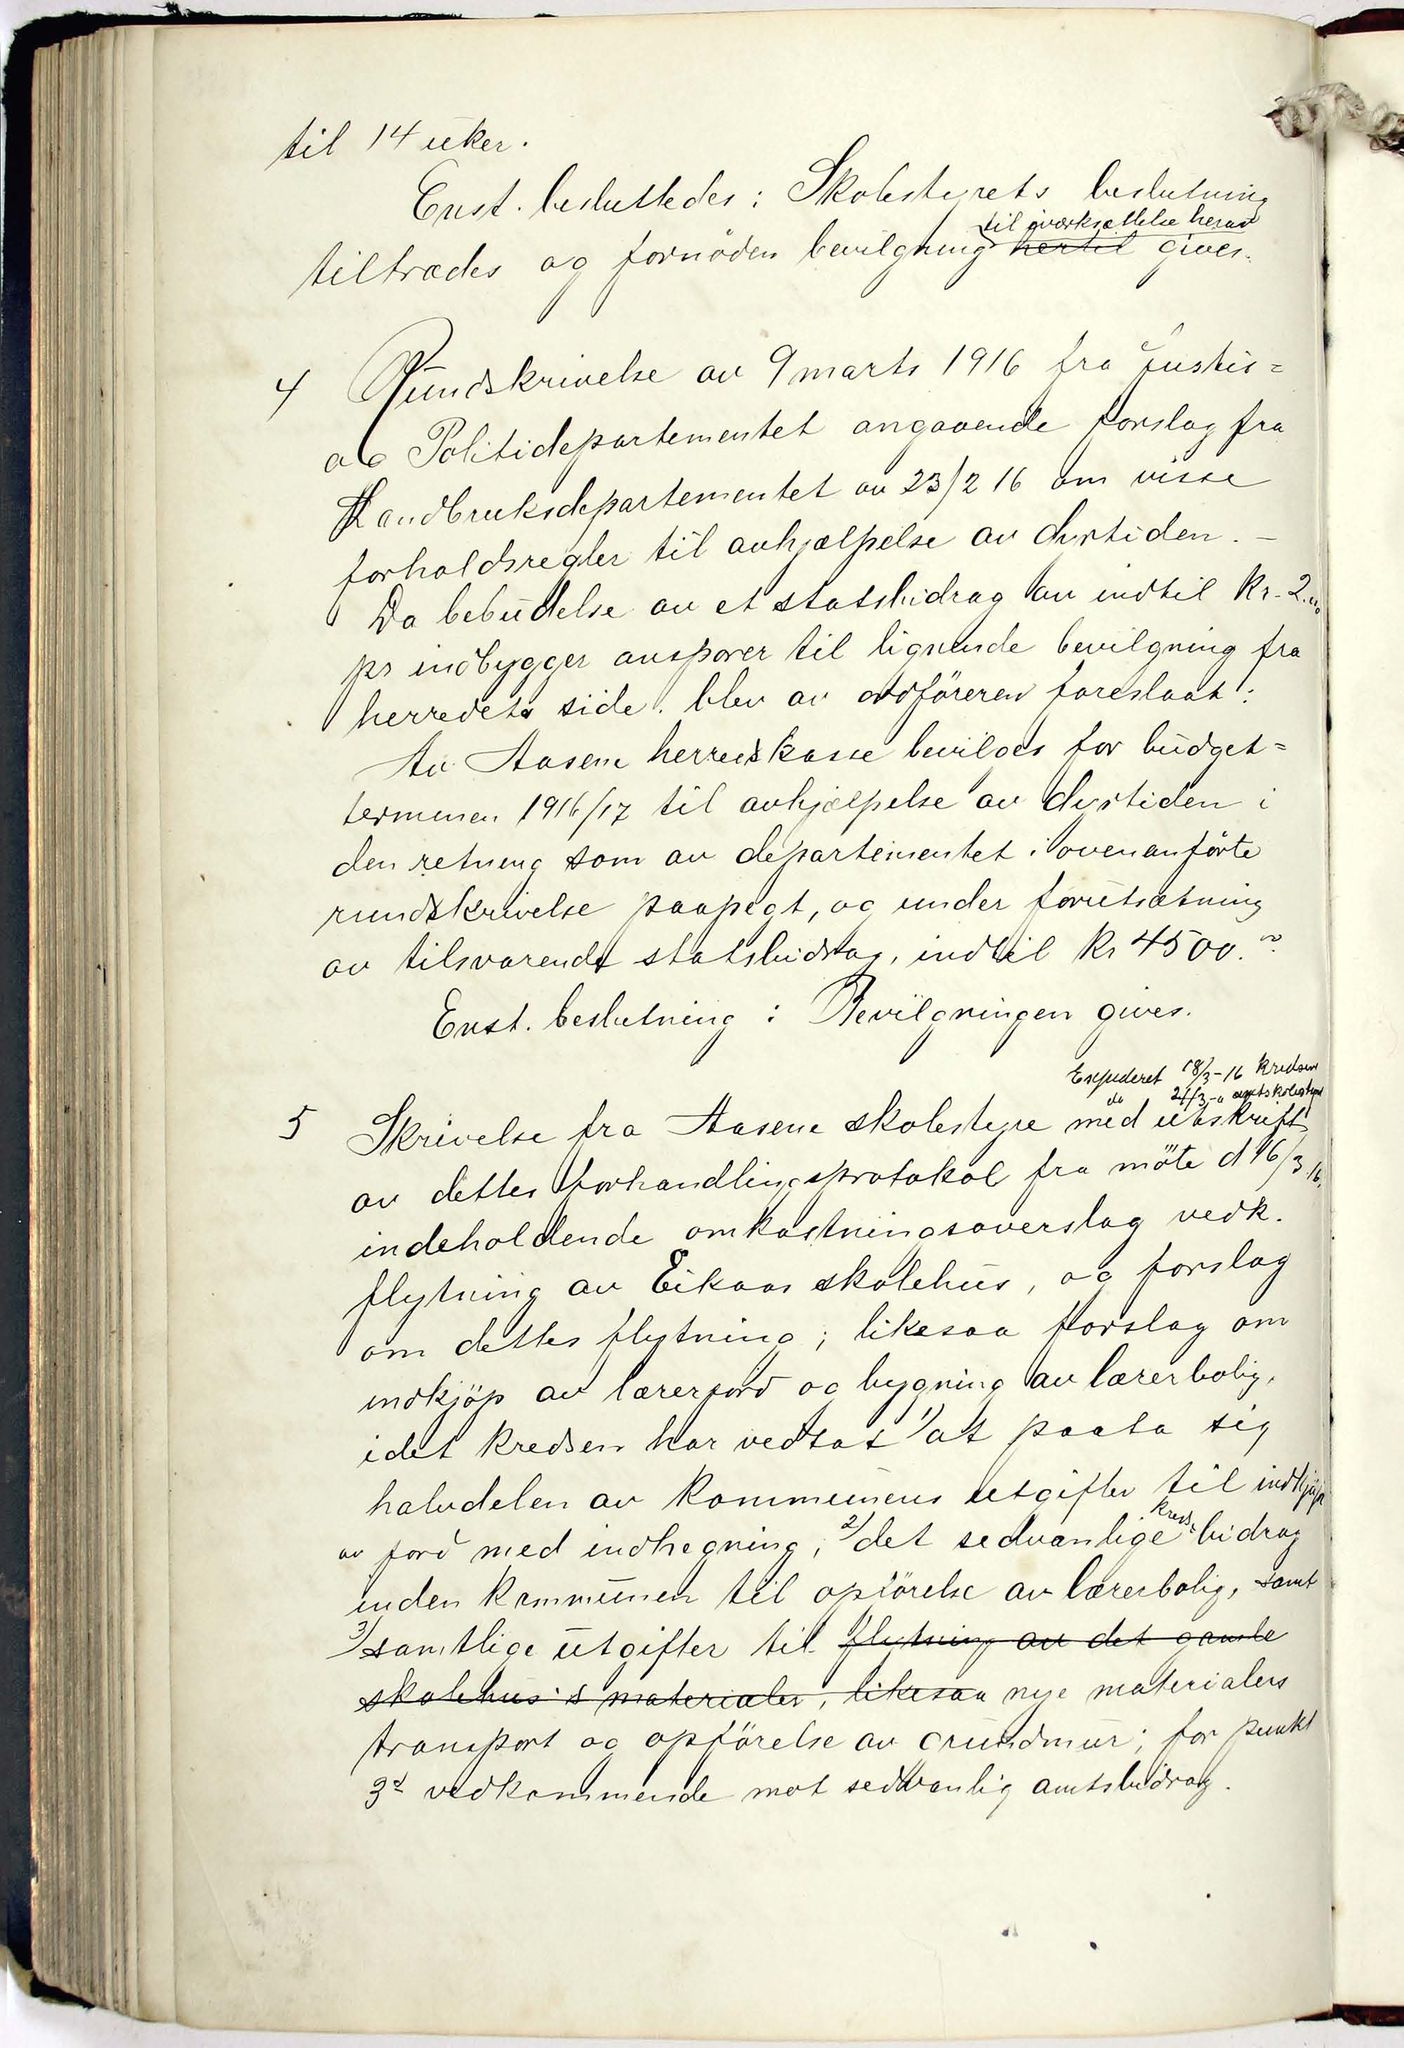 til 14 uker.
Enst. besluttedes: Skolestyrets beslutning
til iværksættelse herav
tiltrædes og fornöden bevilgning hertil gives.
4 Rundskrivelse av 9 marts 1916 fra Justis=
og Politidepartementet angaaende forslag fra
Landbruksdepartementet av 23/2 16 om visse
forholdsregler til avhjælpelse av dyrtiden. –
Da bebudelse av et statsbidrag av indtil Kr. 2.00
pr indbygger ansporer til lignende bevilgning fra
herredets side. blev av ordföreren foreslaat:
Av Aasene herredskasse bevilges for budget=
terminen 1916/17 til avhjælpelse av dyrtiden i
den retning som av departementet i ovenanförte
rundskrivelse paapegt, og under forutsætning
av tilsvarende statsbidrag, indtil Kr 4500.00
Enst. beslutning: Bevilgningen gives.
Expederet 18/3-16 Kredsen
do 21/3-" amtsskolestyre
5 Skrivelse fra Aasene skolestyre med utskrift
av dettes forhandlingsprotokol fra möte d 16/3 16,
indeholdende omkostningsoverslag vedk.
flytning av Eikaas skolehus, og forslag
om dettes flytning; likesaa forslag om
indkjöp av lærerjord og bygning av lærerbolig,
idet kredsen har vedtat 1/ at paata sig
halvdelen av kommunens utgifter til indkjöp
av jord med indhegning; 2/ det sedvanlige kreds-bidrag
inden kommunen til opförelse av lærerbolig, samt
3/ samtlige utgifter til flytning av det gamle
skolehus's materialer, likesaa nye materialers
transport og opförelse av grundmur; for punkt
3s vedkommende mot sedvanlig amtsbidrag.